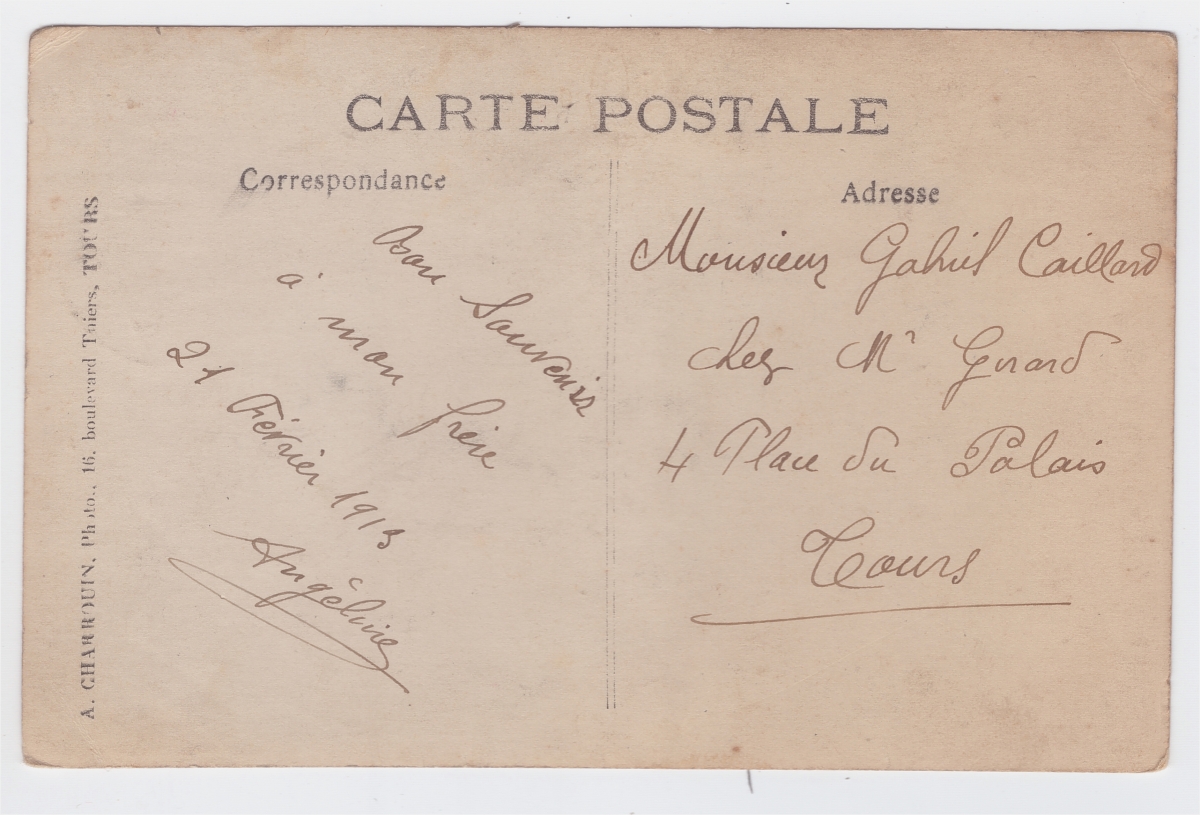 CARTE POSTALE
Correspondance
Adresse
A. CHARROUIN, Photo., 16, boulevard Thiers, TOURS
Bon Souvenir
à mon frère
21 Février 1913
Angèline
Monsieur Gabriel Caillard
chez Mr Girard
4 Place du Palais
Tours